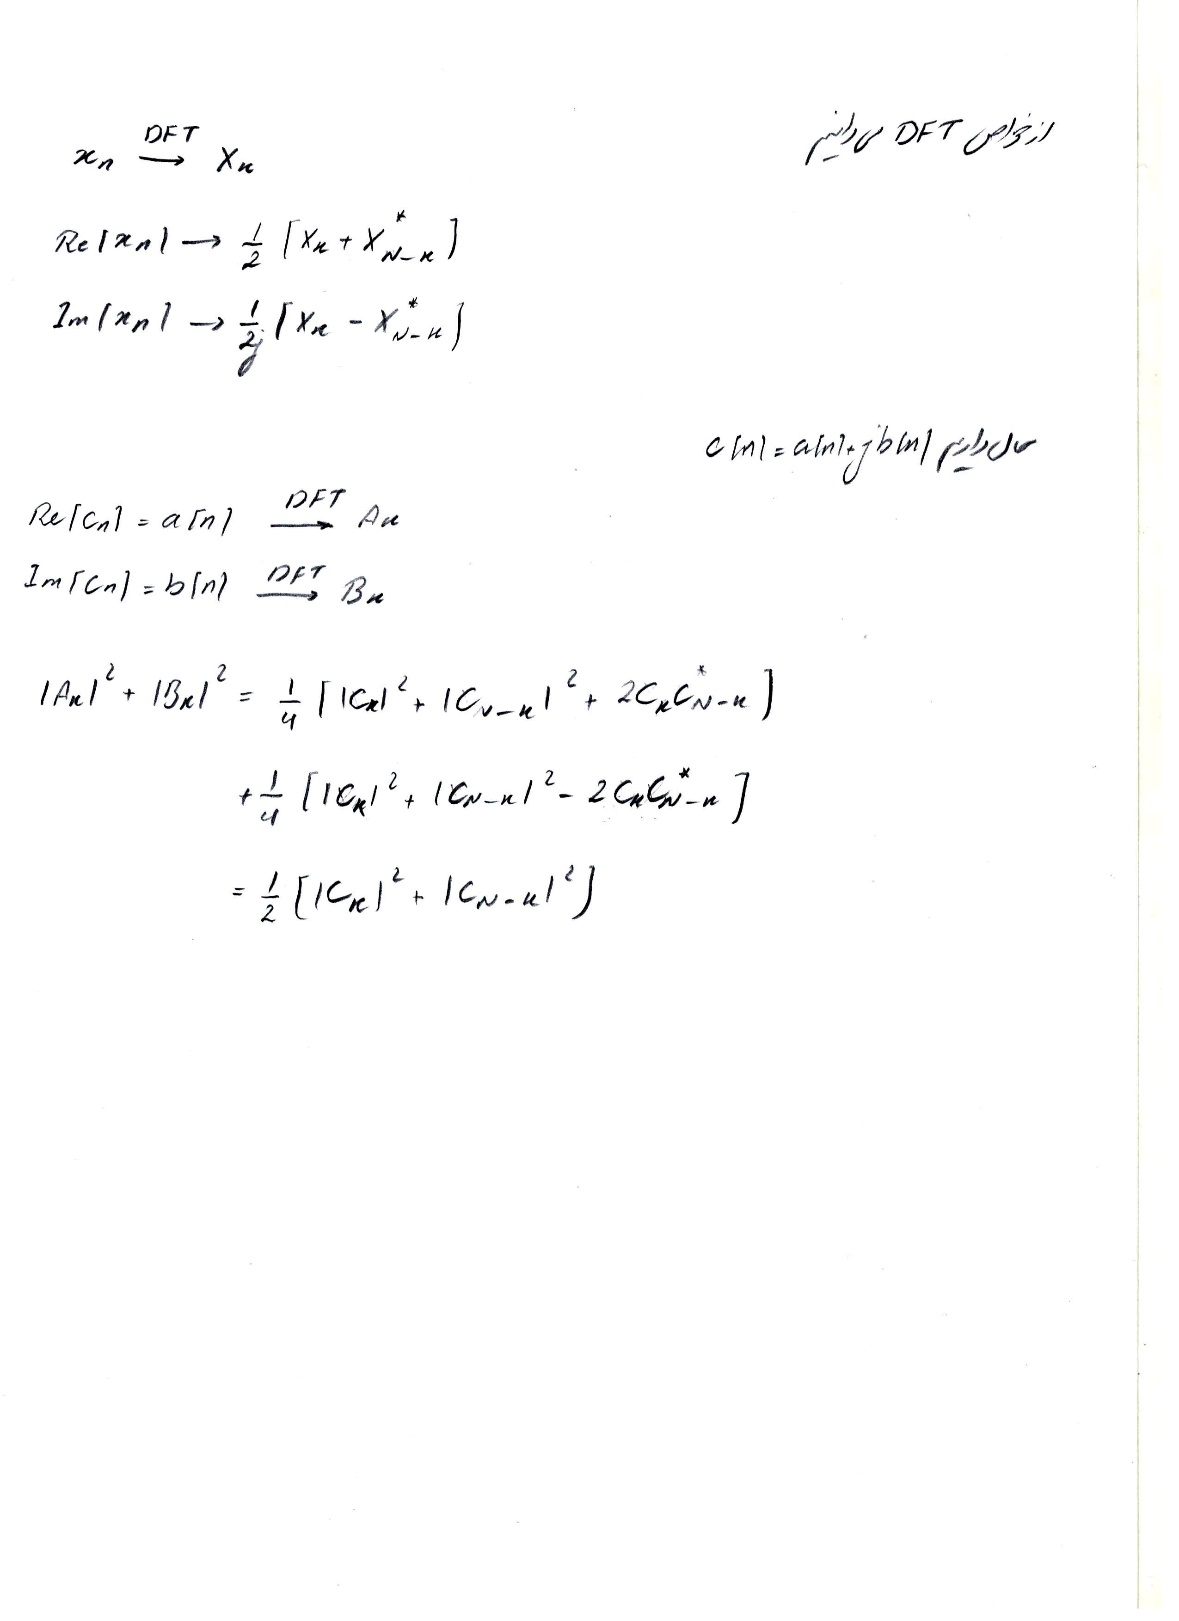 از خواص DFT می دانیم
xₙ DFT→ Xₖ
Re[xₙ] → 1/2 [Xₖ + X*_{N-k}]
Im[xₙ] → 1/2j [Xₖ - X*_{N-k}]
حال داریم c[n] = a[n] + jb[n]
Re[cₙ] = a[n] DFT→ Aₖ
Im[cₙ] = b[n] DFT→ Bₖ
|Aₖ|² + |Bₖ|² = 1/4 [|Cₖ|² + |C_{N-k}|² + 2CₖC*_{N-k}]
+ 1/4 [|Cₖ|² + |C_{N-k}|² - 2CₖC*_{N-k}]
= 1/2 [|Cₖ|² + |C_{N-k}|²]